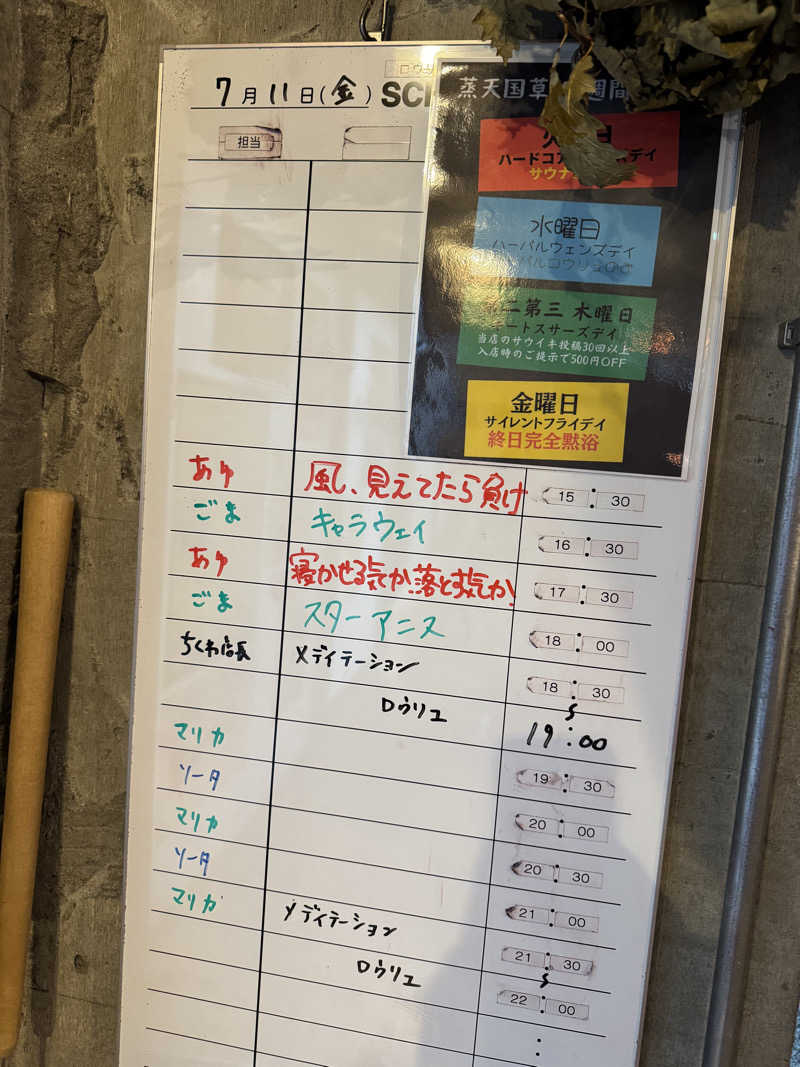 7月11日(金) SC
担当
蒸天国草 週間
ハードコア デイ
サウナ
水曜日
ハーバルウェンズデイ
二第三 木曜日
ートスサーズデイ
当店のサウイキ投稿30回以上
入店時のご提示で500円OFF
金曜日
サイレントフライデイ
終日完全黙浴
あゆ 風、見えてたら負け 15:30
ごま キャラウェイ 16:30
あゆ 寝かせる気か、落とす気か! 17:30
ごま スターアニス 18:00
ちくわ店長 メディテーション 18:30
ロウリュ 〜 19:00
マリカ 19:30
ソータ 20:00
マリカ 20:30
ソータ 21:00
マリカ メディテーション 21:30
ロウリュ 〜 22:00
: